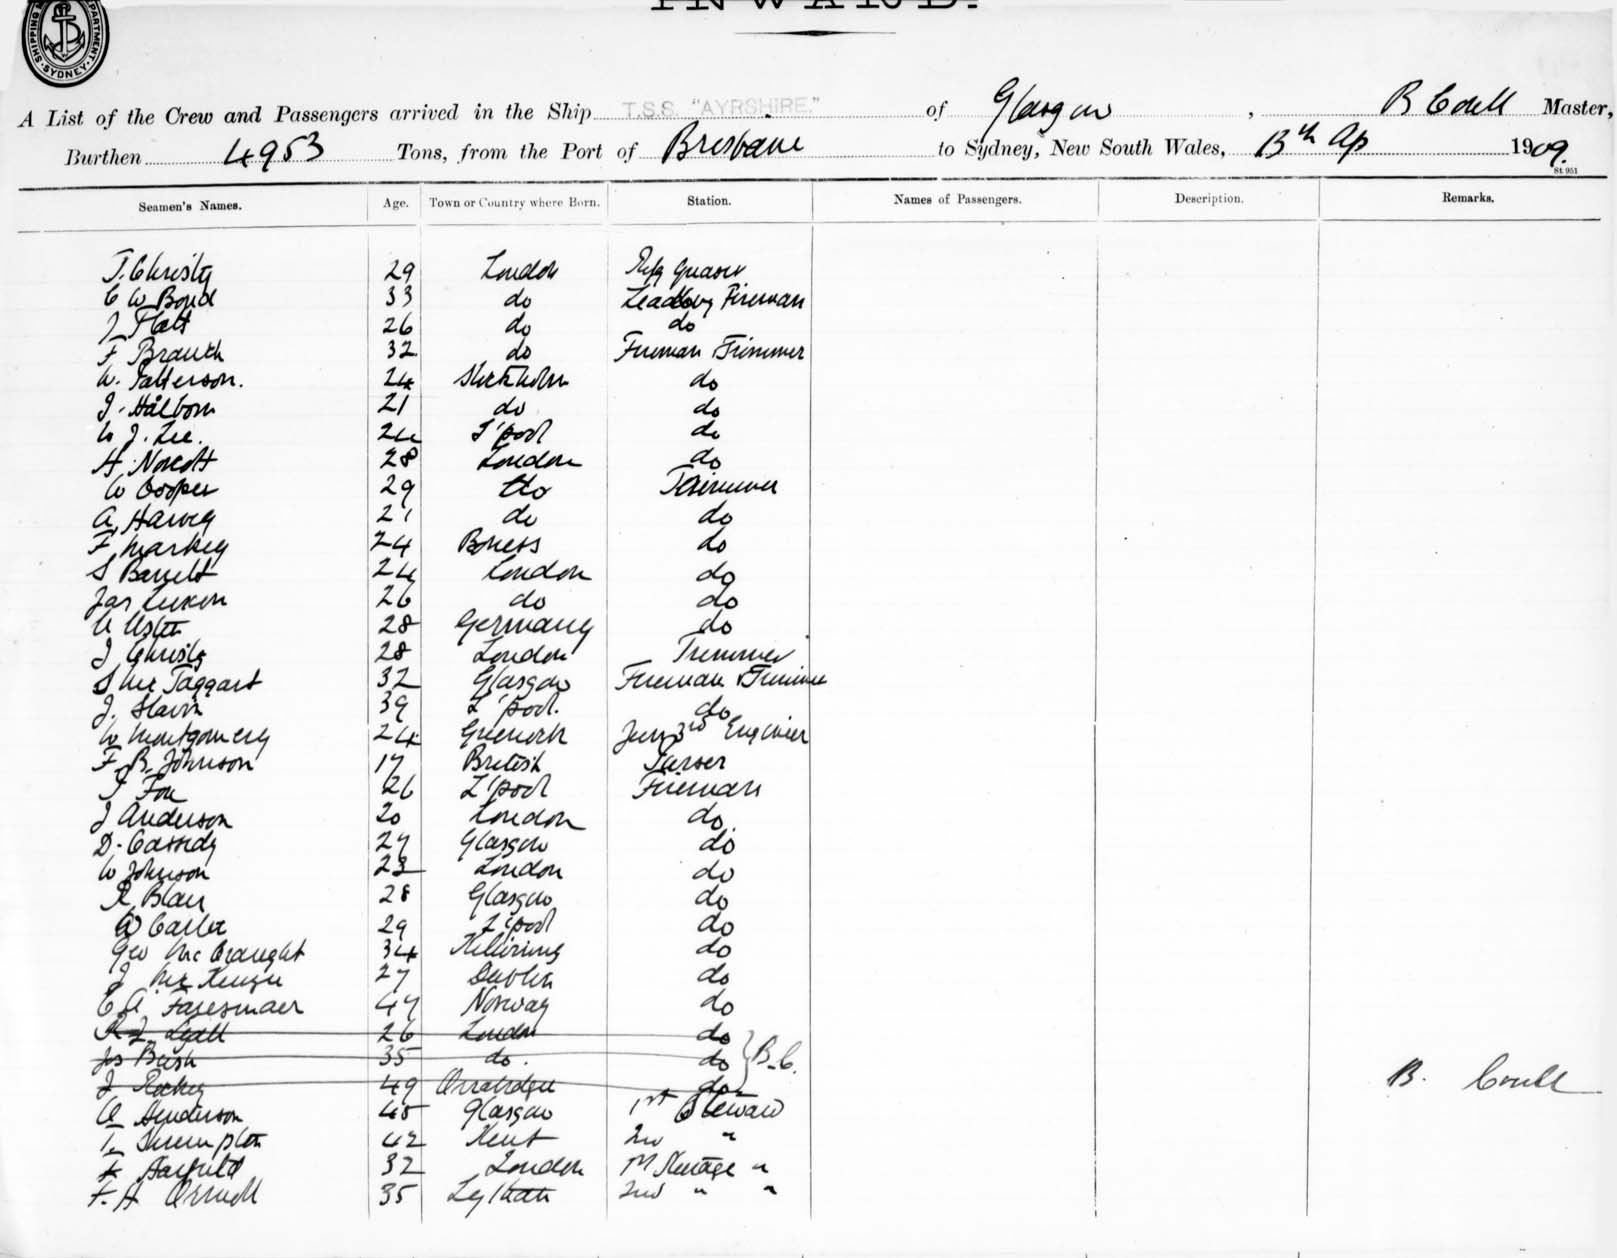 INWARD.
SHIPPING DEPARTMENT. SYDNEY.
A List of the Crew and Passengers arrived in the Ship T.S.S. "AYRSHIRE." of Glasgow, B Master,
Burthen 4953 Tons, from the Port of Brisbane to Sydney, New South Wales, 13th Ap 1909.
St 951
Seamen's Names. Age. Town or Country where Born. Station. Names of Passengers. Description. Remarks.
J. Christy 29 London Refg Greaser
C W Bond 33 do Leading Fireman
J Flatt 26 do do
F 32 do Fireman & Trimmer
W. Patterson. 24 Stockholm do
J. 21 do do
W J. Lee. 24 L'pool do
H. Norcott 28 London do
W Cooper 29 do Trimmer
A Harvey 21 do do
F Markey 24 Boness do
S Barrett 24 London do
Jas Luxon 26 do do
28 Germany do
J Christy 28 London Trimmer
S McTaggart 32 Glasgow Fireman & Trimmer
J. Slavin 39 L'pool. do
W Montgomery 24 Greenock Jun 3rd Engineer
F. B. Johnson 17 British Purser
J Fox 26 L'pool Fireman
J Anderson 20 London do
D. Cassidy 27 Glasgow do
W Johnson 23 London do
R Blair 28 Glasgow do
W Carter 29 L'pool do
Geo McCraught 34 do
J McKenzie 27 Dublin do
C A 47 Norway do
26 London do
Jos Bush 35 do. do B.C.
J 49 do
A Henderson 45 Glasgow 1st Steward
Shrumpton 42 Kent 2nd "
32 London 1st Steerage "
F. H 35 2nd " "
B.